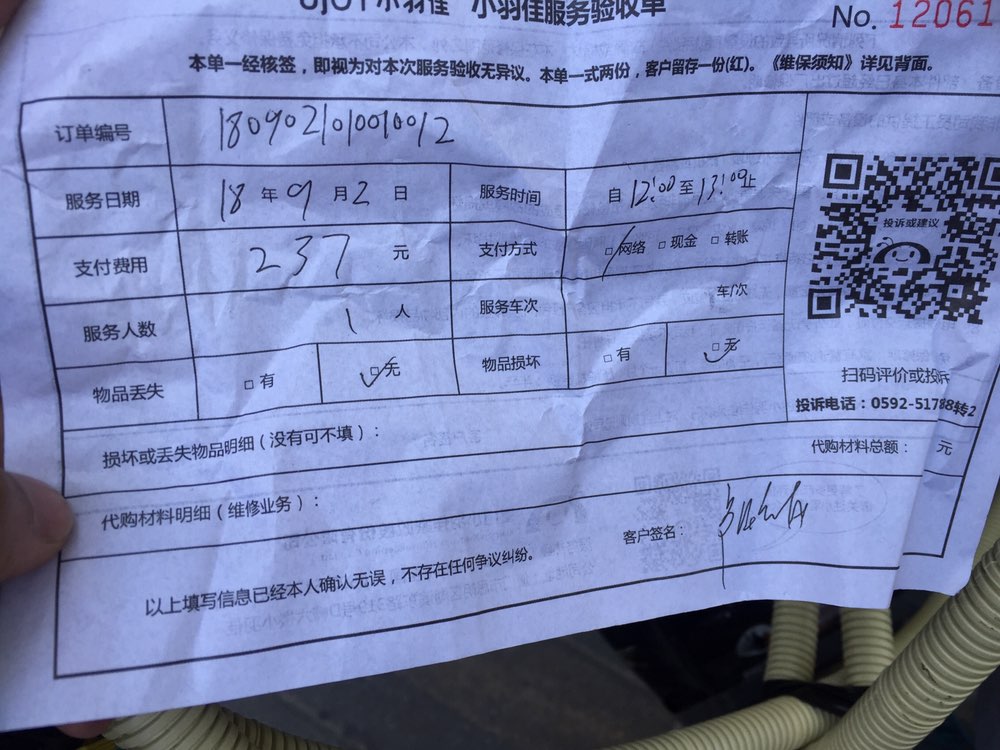 小羽佳 小羽佳服务验收单
No. 12061
本单一经核签，即视为对本次服务验收无异议。本单一式两份，客户留存一份(红)。《维保须知》详见背面。
订单编号 180902101001001​2
服务日期 18 年 9 月 2 日 服务时间 自 12:00 至 13:09 止
支付费用 237 元 支付方式 □网络 □现金 □转账
服务人数 1 人 服务车次 车/次
物品丢失 □有 □无 物品损坏 □有 □无
投诉或建议
扫码评价或投诉
投诉电话：0592-51788转2
损坏或丢失物品明细（没有可不填）：
代购材料总额： 元
代购材料明细（维修业务）：
客户签名：
以上填写信息已经本人确认无误，不存在任何争议纠纷。